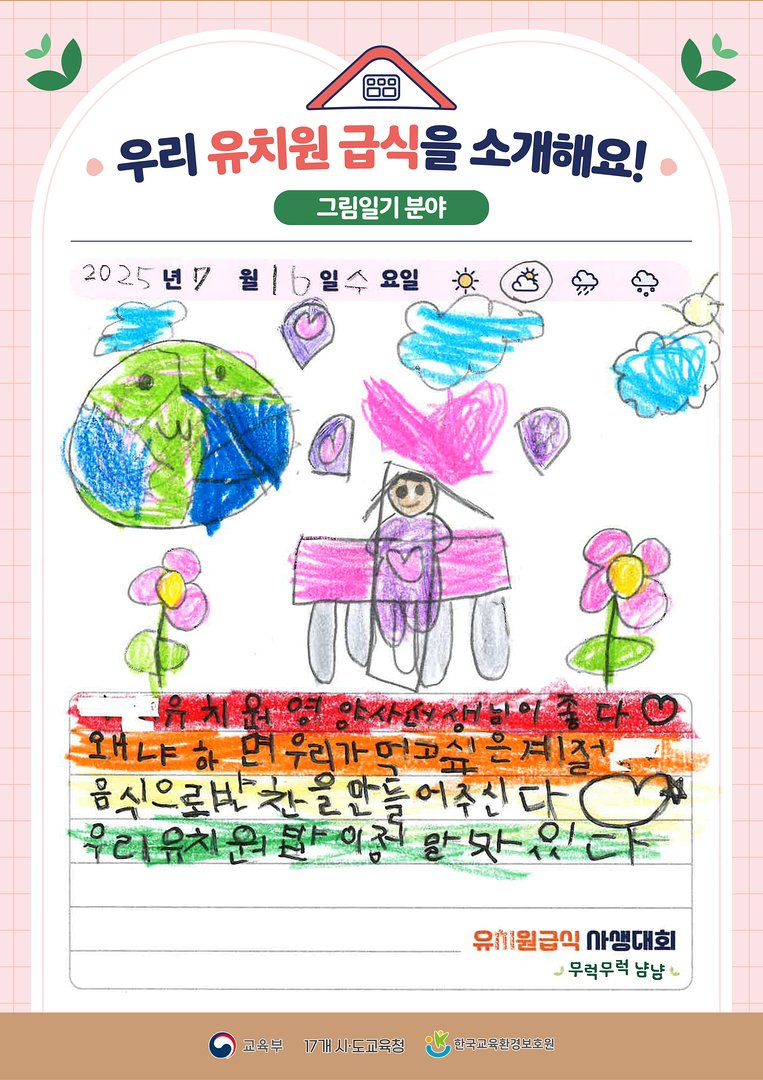 우리 유치원 급식을 소개해요!
그림일기 분야
2025 년 7 월 16 일 수 요일
유치원 영양사선생님이 좋다
왜냐하면 우리가 먹고싶은 계절
음식으로 반찬을 만들어주신다
우리유치원 밥이 정말 맛있다
유치원급식 사생대회
무럭무럭 냠냠
교육부 17개 시·도교육청 한국교육환경보호원